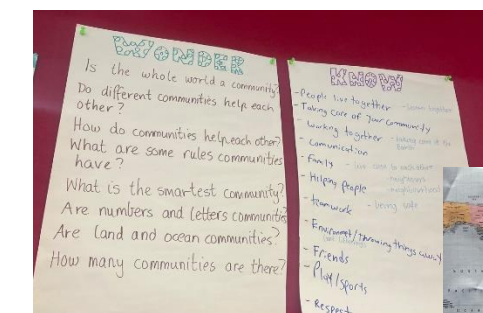 WONDER
Is the whole world a community?
Do different communities help each
other?
How do communities help each other?
What are some rules communities
have?
What is the smartest community?
Are numbers and letters communities
Are land and ocean communities?
How many communities are there?
KNOW
- People live together
- Taking care of your community
- working together
- Comunication
- Family
- Helping people
- teamwork - being safe
- Enviroment/throwing things away
- Friends
- Play/sports
- Respect